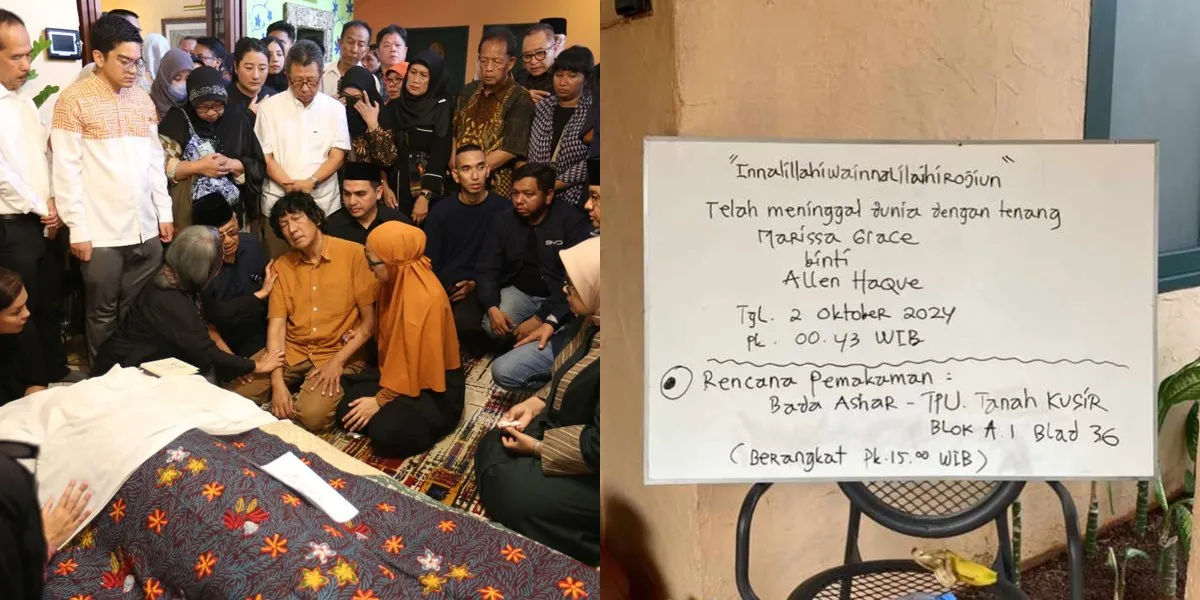 BYD
"Innalillahiwainnalilaihirojiun"
Telah meninggal dunia dengan tenang
Marissa Grace
binti
Allen Haque
Tgl. 2 Oktober 2024
Pk. 00.43 WIB
Rencana Pemakaman :
Bada Ashar - TPU. Tanah Kusir
Blok A.1 Blad 36
(Berangkat Pk.15.00 WIB)